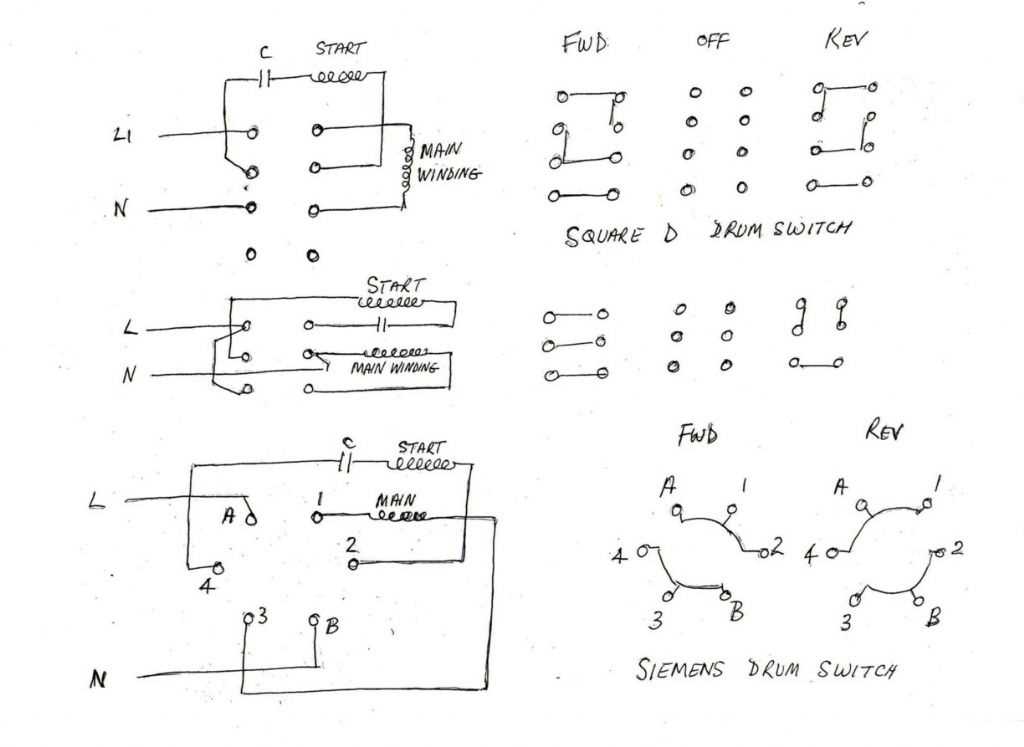 C START
L1
MAIN
WINDING
N
FWD OFF REV
SQUARE D DRUM SWITCH
START
L
N
MAIN WINDING
C START
L
A
1 MAIN
2
4
3 B
N
FWD REV
A 1
4 2
3 B
A 1
4 2
3 B
SIEMENS DRUM SWITCH